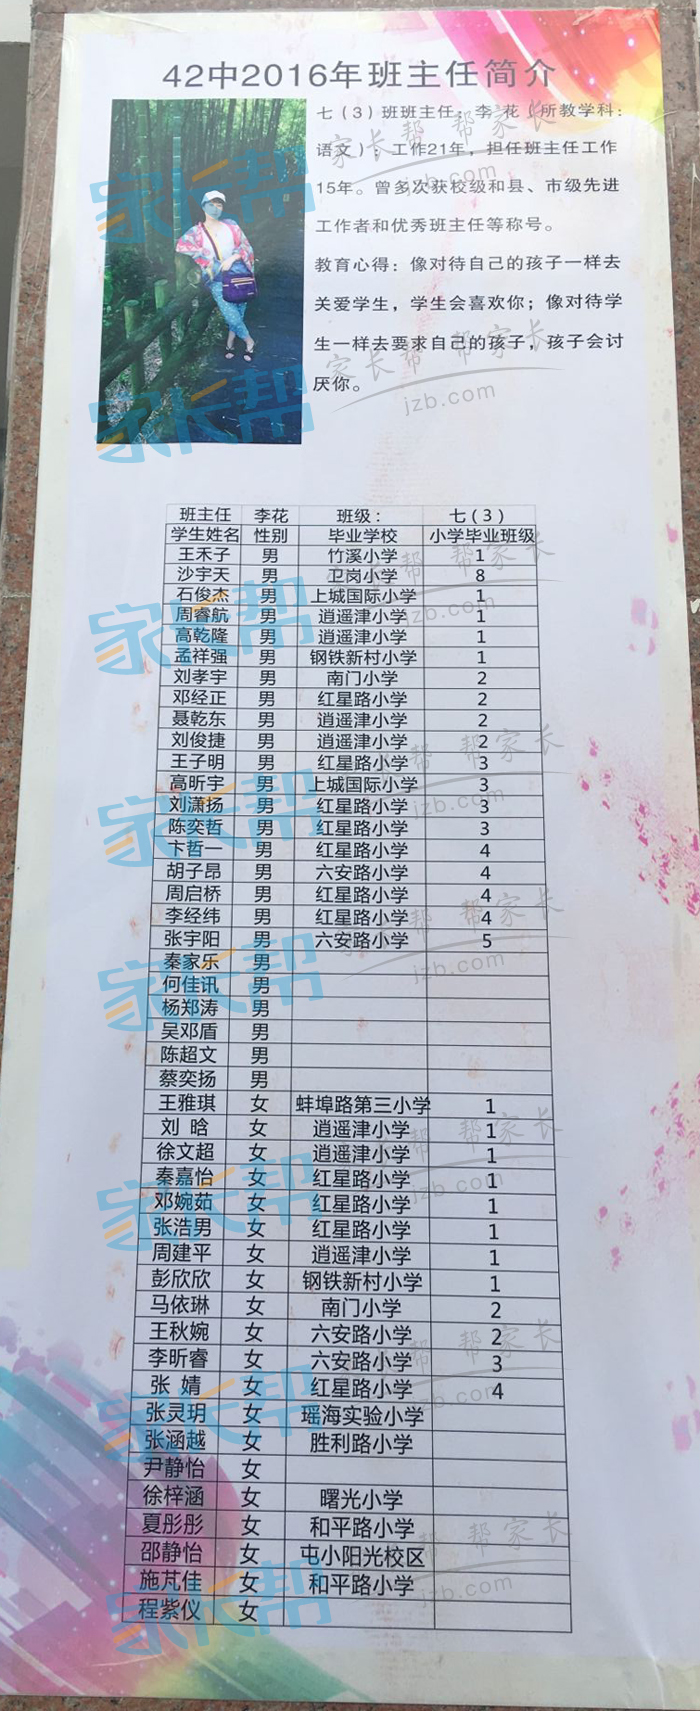 42中2016年班主任简介
七（3）班班主任：李 花（所教学科：
语文），工作21年，担任班主任工作
15年。曾多次获校级和县、市级先进
工作者和优秀班主任等称号。
教育心得：像对待自己的孩子一样去
关爱学生，学生会喜欢你；像对待学
生一样去要求自己的孩子，孩子会讨
厌你。
班主任 李花 班级： 七（3）
学生姓名 性别 毕业学校 小学毕业班级
王禾子 男 竹溪小学 1
沙宇天 男 卫岗小学 8
石俊杰 男 上城国际小学 1
周睿航 男 逍遥津小学 1
高乾隆 男 逍遥津小学 1
孟祥强 男 钢铁新村小学 1
刘孝宇 男 南门小学 2
邓经正 男 红星路小学 2
聂乾东 男 逍遥津小学 2
刘俊捷 男 逍遥津小学 2
王子明 男 红星路小学 3
高昕宇 男 上城国际小学 3
刘潇扬 男 红星路小学 3
陈奕哲 男 红星路小学 3
卞哲一 男 红星路小学 4
胡子昂 男 六安路小学 4
周启桥 男 红星路小学 4
李经纬 男 红星路小学 4
张宇阳 男 六安路小学 5
秦家乐 男
何佳讯 男
杨郑涛 男
吴邓盾 男
陈超文 男
蔡奕扬 男
王雅琪 女 蚌埠路第三小学 1
刘 晗 女 逍遥津小学 1
徐文超 女 逍遥津小学 1
秦嘉怡 女 红星路小学 1
邓婉茹 女 红星路小学 1
张浩男 女 红星路小学 1
周建平 女 逍遥津小学 1
彭欣欣 女 钢铁新村小学 1
马依琳 女 南门小学 2
王秋婉 女 六安路小学 2
李昕睿 女 六安路小学 3
张 婧 女 红星路小学 4
张灵玥 女 瑶海实验小学
张涵越 女 胜利路小学
尹静怡 女
徐梓涵 女 曙光小学
夏彤彤 女 和平路小学
邵静怡 女 屯小阳光校区
施芃佳 女 和平路小学
程紫仪 女
家长帮
帮家长
jzb.com